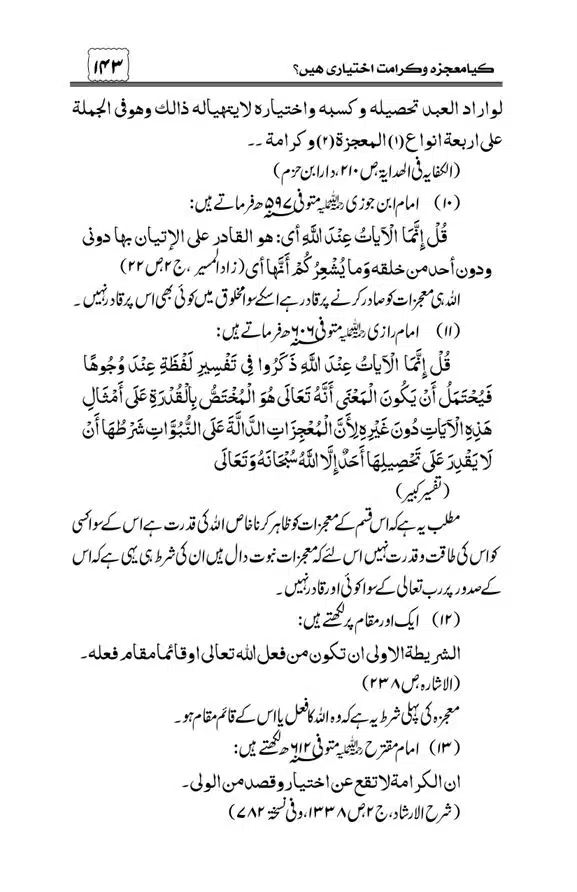 کیا معجزہ وکرامت اختیاری ھیں؟ ۱۴۳
لواراد العبد تحصیلہ وکسبہ واختیارہ لایتھیالہ ذالك وھوفی الجملة
علی اربعة انواع (۱) المعجزة (۲) وکرامة ۔۔
(الکفایہ فی الھدایة،ص ۲۱۰،دارابن حزم)
(۱۰) امام ابن جوزی رحمہ اللہ متوفی ۵۹۷ھ فرماتے ہیں:
قُلْ إِنَّمَا الْآيَاتُ عِنْدَ اللَّهِ أی: هو القادر علی الإتیان بها دونی
ودون أحد من خلقه وَمَا يُشْعِرُكُمْ أَنَّهَا أی (زادالمسیر ،ج ۲ص ۲۲)
اللہ ہی معجزات کو صادر کرنے پر قادر ہے اسکے سوا مخلوق میں کوئی بھی اس پر قادر نہیں ۔
(۱۱) امام رازی رحمہ اللہ متوفی ۶۰۶ھ فرماتے ہیں:
قُلْ إِنَّمَا الْآيَاتُ عِنْدَ اللَّهِ ذَكَرُوا فِي تَفْسِيرِ لَفْظَةِ عِنْدَ وُجُوهًا
فَيُحْتَمَلُ أَنْ يَكُونَ الْمَعْنَى أَنَّهُ تَعَالَى هُوَ الْمُخْتَصُّ بِالْقُدْرَةِ عَلَى أَمْثَالِ
هَذِهِ الْآيَاتِ دُونَ غَيْرِهِ لِأَنَّ الْمُعْجِزَاتِ الدَّالَّةَ عَلَى النُّبُوَّاتِ شَرْطُهَا أَنْ
لَا يَقْدِرَ عَلَى تَحْصِيلِهَا أَحَدٌ إِلَّا اللَّهُ سُبْحَانَهُ وَتَعَالَى
(تفسیر کبیر)
مطلب یہ ہے کہ اس قسم کے معجزات کو ظاہر کرنا خاص اللہ کی قدرت ہے اس کے سوا کسی
کو اس کی طاقت و قدرت نہیں اس لئے کہ معجزات نبوت دال میں ان کی شرط ہی یہی ہے کہ اس
کے صدور پر رب تعالی کے سوا کوئی اور قادر نہیں ۔
(۱۲) ایک اور مقام پر لکھتے ہیں:
الشریطة الاولی ان تکون من فعل الله تعالی اوقائما مقام فعله ۔
(الاشارہ،ص ۲۳۸)
معجزہ کی پہلی شرط یہ ہے کہ وہ اللہ کا فعل یا اس کے قائم مقام ہو ۔
(۱۳) امام مقترح رحمہ اللہ متوفی ۶۱۲ھ لکھتے ہیں:
ان الکرامة لاتقع عن اختیار وقصد من الولی ۔
(شرح الارشاد، ج ۲ص ۱۳۳۸،وفی نسخة ۷۸۲)